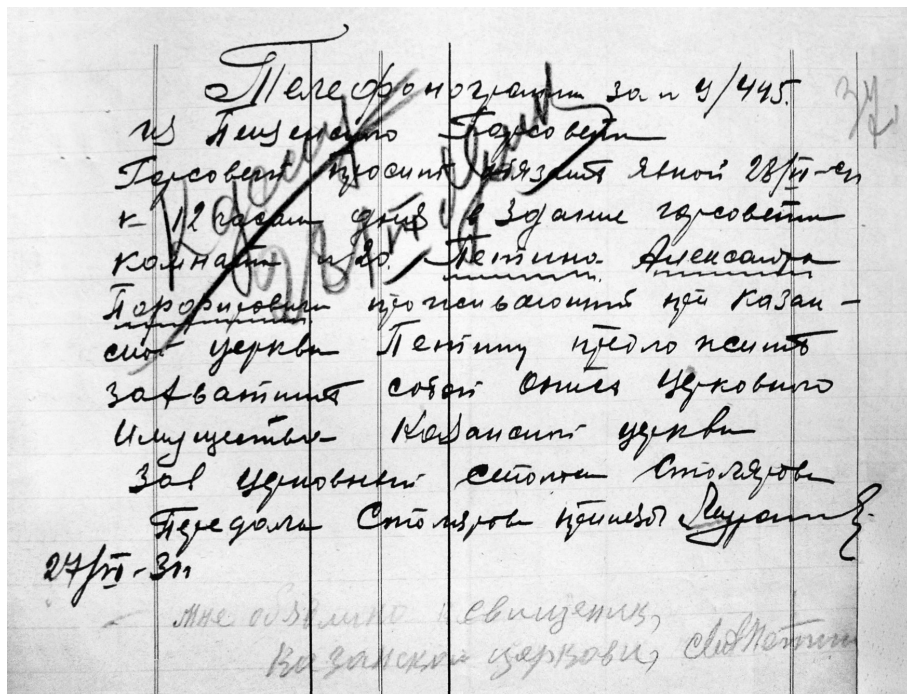 Телефонограмма за № 9/445.
из Пензенского Горсовета
Горсовет просит обязать явкой 28/VI-с/г
к 12 часам дня в здание горсовета
комната №20. Петина Александра
Порфирьевича проживающий при Казан-
ской церкви Петину предложить
захватить собой опись церковного
имущества Казанской церкви
Зав церковным столом Столярова
Передала Столярова принял
27/VI-31
мне объявлено священник
Казанской церкви, Петин
37